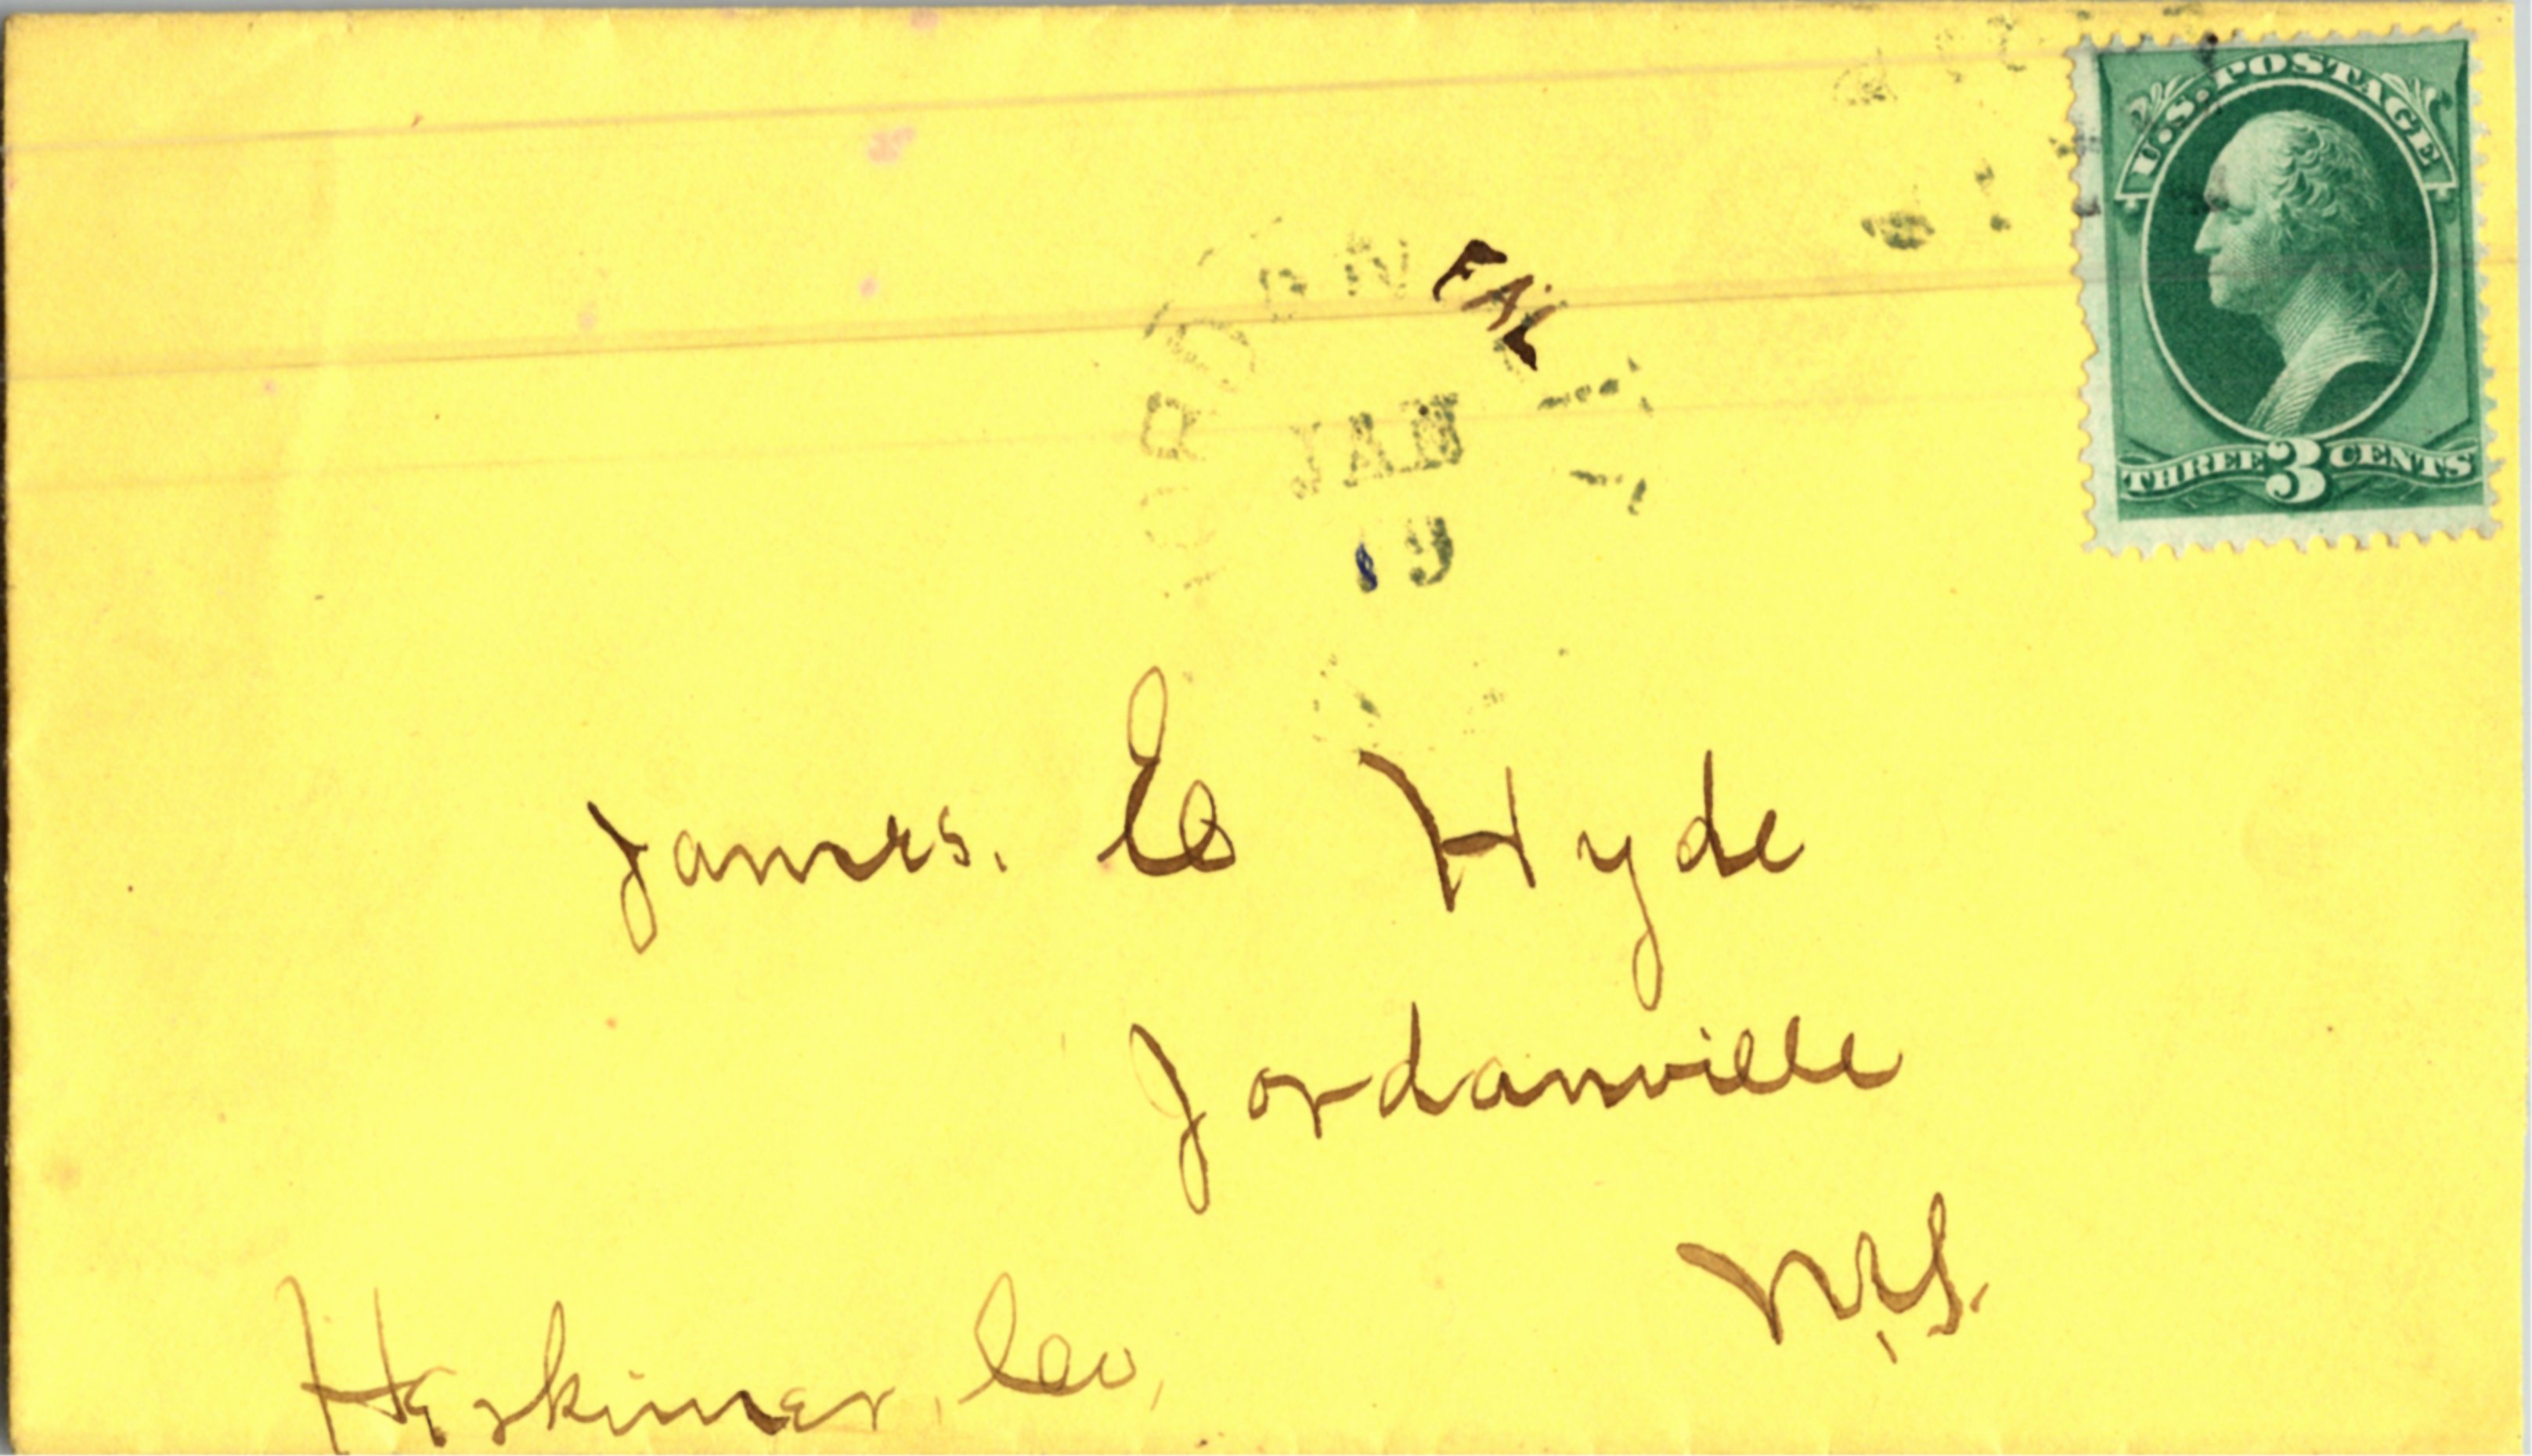 U.S. POSTAGE
THREE 3 CENTS
FAL
JAN
19
James. Co Hyde
Jordanville
N.Y.
Herkimer, Co,